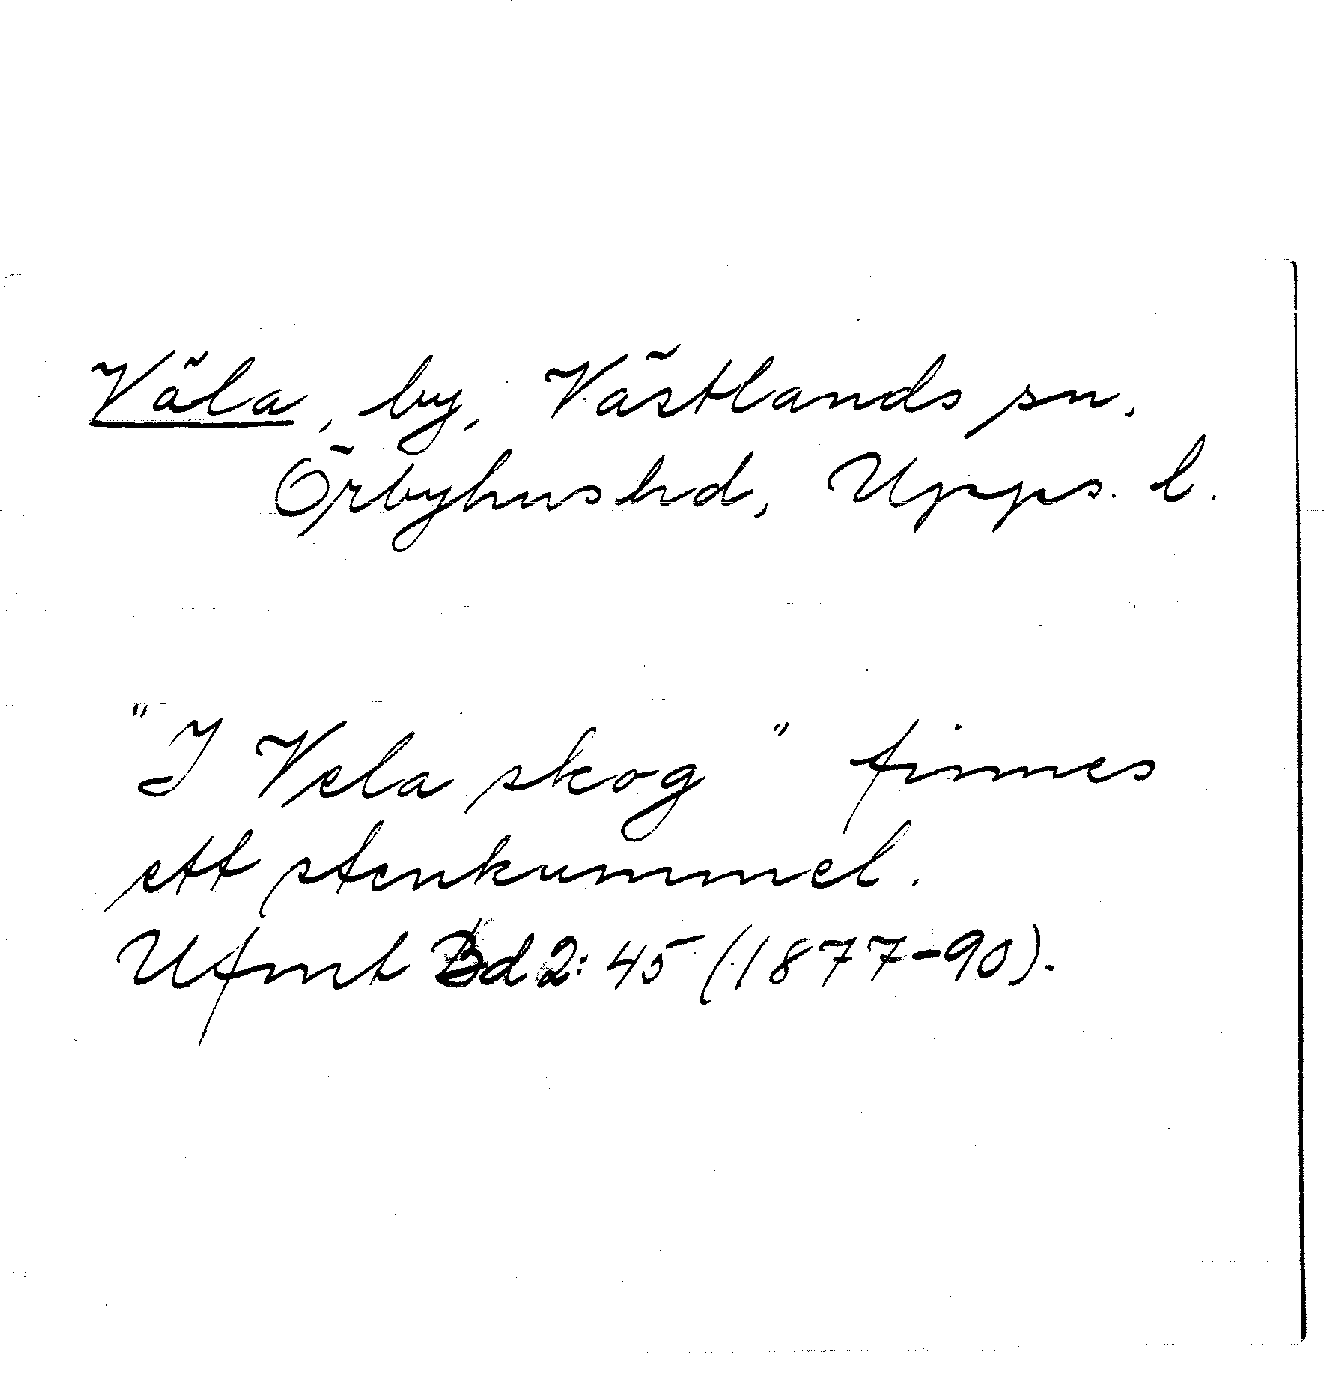 Väla, by, Västlands sn,
Örbyhus hd, Upps. l.
"I Vela skog" finnes
ett stenkummel.
Ufmt Bd 2: 45 (1877-90).